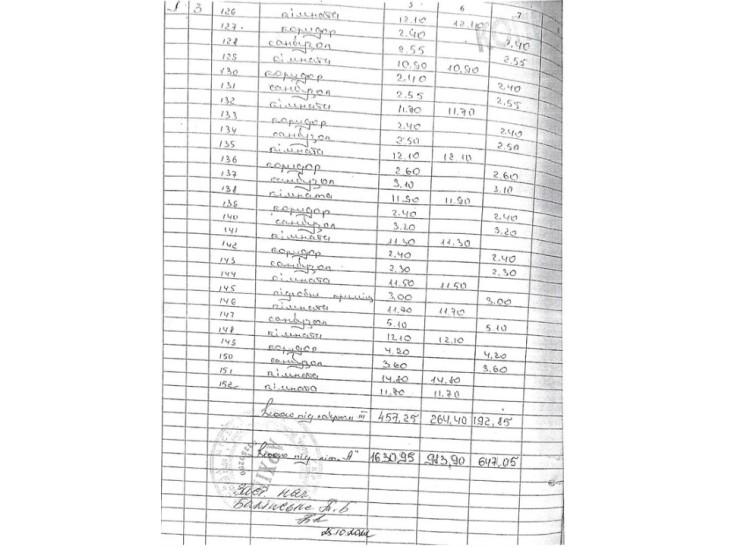 5 6 7
1 3 126 кімната 12.10 12.10
127 коридор 2.40 2.40
128 санвузол 2.55 2.55
129 кімната 10.90 10.90
130 коридор 2.40 2.40
131 санвузол 2.55 2.55
132 кімната 11.70 11.70
133 коридор 2.40 2.40
134 санвузол 2.50 2.50
135 кімната 12.10 12.10
136 коридор 2.60 2.60
137 санвузол 3.10 3.10
138 кімната 11.90 11.90
139 коридор 2.40 2.40
140 санвузол 3.20 3.20
141 кімната 11.30 11.30
142 коридор 2.40 2.40
143 санвузол 2.30 2.30
144 кімната 11.50 11.50
145 підсобне приміщ 3.00 3.00
146 кімната 11.70 11.70
147 санвузол 5.10 5.10
148 кімната 12.10 12.10
149 коридор 4.20 4.20
150 санвузол 3.60 3.60
151 кімната
152 кімната 11.70 11.70
457.25 264.40 192.85
1630.95 647.05
25.10